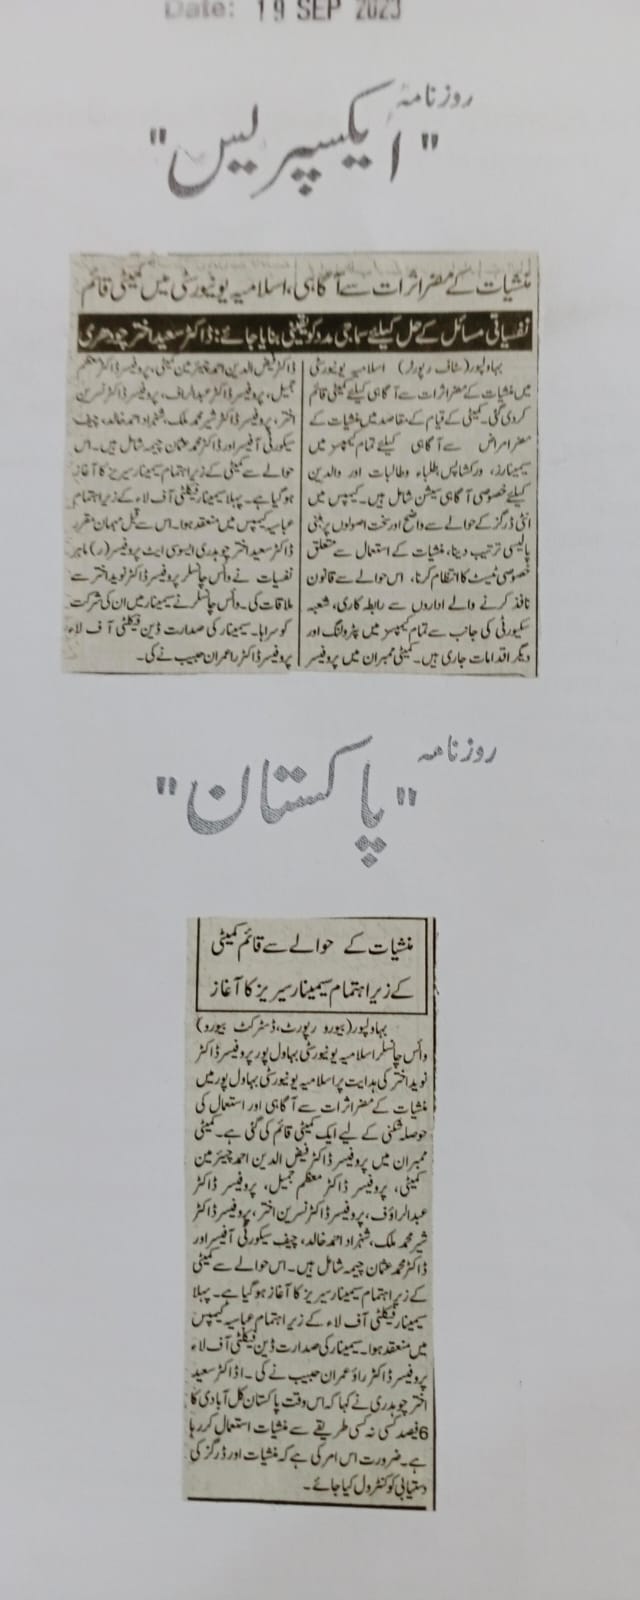 Date: 19 SEP 2023
روزنامہ
"ایکسپریس"
منشیات کے مضر اثرات سے آگاہی، اسلامیہ یونیورسٹی میں کمیٹی قائم
نفسیاتی مسائل کے حل کیلئے سماجی مدد کو یقینی بنایا جائے: ڈاکٹر سعید اختر چودھری
بہاولپور (سٹاف رپورٹر) اسلامیہ یونیورسٹی
میں منشیات کے مضر اثرات سے آگاہی کیلئے کمیٹی قائم
کردی گئی۔ کمیٹی کے قیام کے مقاصد میں منشیات کے
مضر امراض سے آگاہی کیلئے تمام کیمپسز میں
سیمینارز، ورکشاپس، طلباء وطالبات اور والدین
کیلئے خصوصی آگاہی سیشن شامل ہیں۔ کیمپس میں
انٹی ڈرگز کے حوالے سے واضح اور سخت اصولوں پر مبنی
پالیسی ترتیب دینا، منشیات کے استعمال سے متعلق
خصوصی ٹیسٹ کا انتظام کرنا، اس حوالے سے قانون
نافذ کرنے والے اداروں سے رابطہ کاری، شعبہ
سکیورٹی کی جانب سے تمام کیمپسز میں پٹرولنگ اور
دیگر اقدامات جاری ہیں۔ کمیٹی ممبران میں پروفیسر
ڈاکٹر فیض الدین احمد چیئرمین کمیٹی، پروفیسر ڈاکٹر معظم
جمیل، پروفیسر ڈاکٹر عبدالراف، پروفیسر ڈاکٹر نسرین
اختر، پروفیسر ڈاکٹر شیر محمد ملک، شہزاد احمد خالد، چیف
سیکورٹی آفیسر اور ڈاکٹر محمد عثمان چیمہ شامل ہیں۔ اس
حوالے سے کمیٹی کے زیر اہتمام سیمینار سیریز کا آغاز
ہوگیا ہے۔ پہلا سیمینار فیکلٹی آف لاء کے زیر اہتمام
عباسیہ کیمپس میں منعقد ہوا۔ اس سے قبل مہمان مقرر
ڈاکٹر سعید اختر چوہدری ایسوسی ایٹ پروفیسر (ر) ماہر
نفسیات نے وائس چانسلر پروفیسر ڈاکٹر نوید اختر سے
ملاقات کی۔ وائس چانسلر نے سیمینار میں ان کی شرکت
کو سراہا۔ سیمینار کی صدارت ڈین فیکلٹی آف لاء
پروفیسر ڈاکٹر راعمران حبیب نے کی۔
روزنامہ
"پاکستان"
منشیات کے حوالے سے قائم کمیٹی
کے زیر اہتمام سیمینار سیریز کا آغاز
بہاولپور (بیورو رپورٹ، ڈسٹرکٹ بیورو)
وائس چانسلر اسلامیہ یونیورسٹی بہاول پور پروفیسر ڈاکٹر
نوید اختر کی ہدایت پر اسلامیہ یونیورسٹی بہاول پور میں
منشیات کے مضر اثرات سے آگاہی اور استعمال کی
حوصلہ شکنی کے لیے ایک کمیٹی قائم کی گئی ہے۔ کمیٹی
ممبران میں پروفیسر ڈاکٹر فیض الدین احمد چیئرمین
کمیٹی، پروفیسر ڈاکٹر معظم جمیل، پروفیسر ڈاکٹر
عبدالراؤف، پروفیسر ڈاکٹر نسرین اختر، پروفیسر ڈاکٹر
شیر محمد ملک، شہزاد احمد خالد، چیف سیکورٹی آفیسر اور
ڈاکٹر محمد عثمان چیمہ شامل ہیں۔ اس حوالے سے کمیٹی
کے زیر اہتمام سیمینار سیریز کا آغاز ہوگیا ہے۔ پہلا
سیمینار فیکلٹی آف لاء کے زیر اہتمام عباسیہ کیمپس
میں منعقد ہوا۔ سیمینار کی صدارت ڈین فیکلٹی آف لاء
پروفیسر ڈاکٹر راؤ عمران حبیب نے کی۔ ڈاکٹر سعید
اختر چوہدری نے کہا کہ اس وقت پاکستان کل آبادی کا
6 فیصد کسی نہ کسی طریقے سے منشیات استعمال کررہا
ہے۔ ضرورت اس امر کی ہے کہ منشیات اور ڈرگز کی
دستیابی کو کنٹرول کیا جائے۔